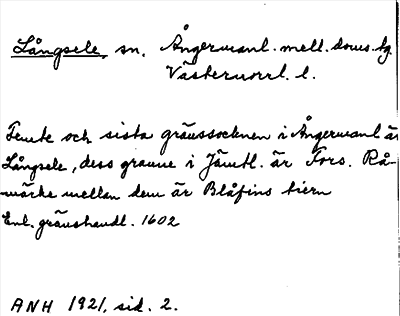 Långsele, sn. Ångermanl. mell. doms.-sg
Västernorrl. l.
Femte och sista gränssocknen i Ångermanl är
Långsele, dess granne i Jämtl. är Fors. Rå-
märke mellan dem är Blåfins tiern
Enl. gränshandl. 1602
ANH 1921, sid. 2.